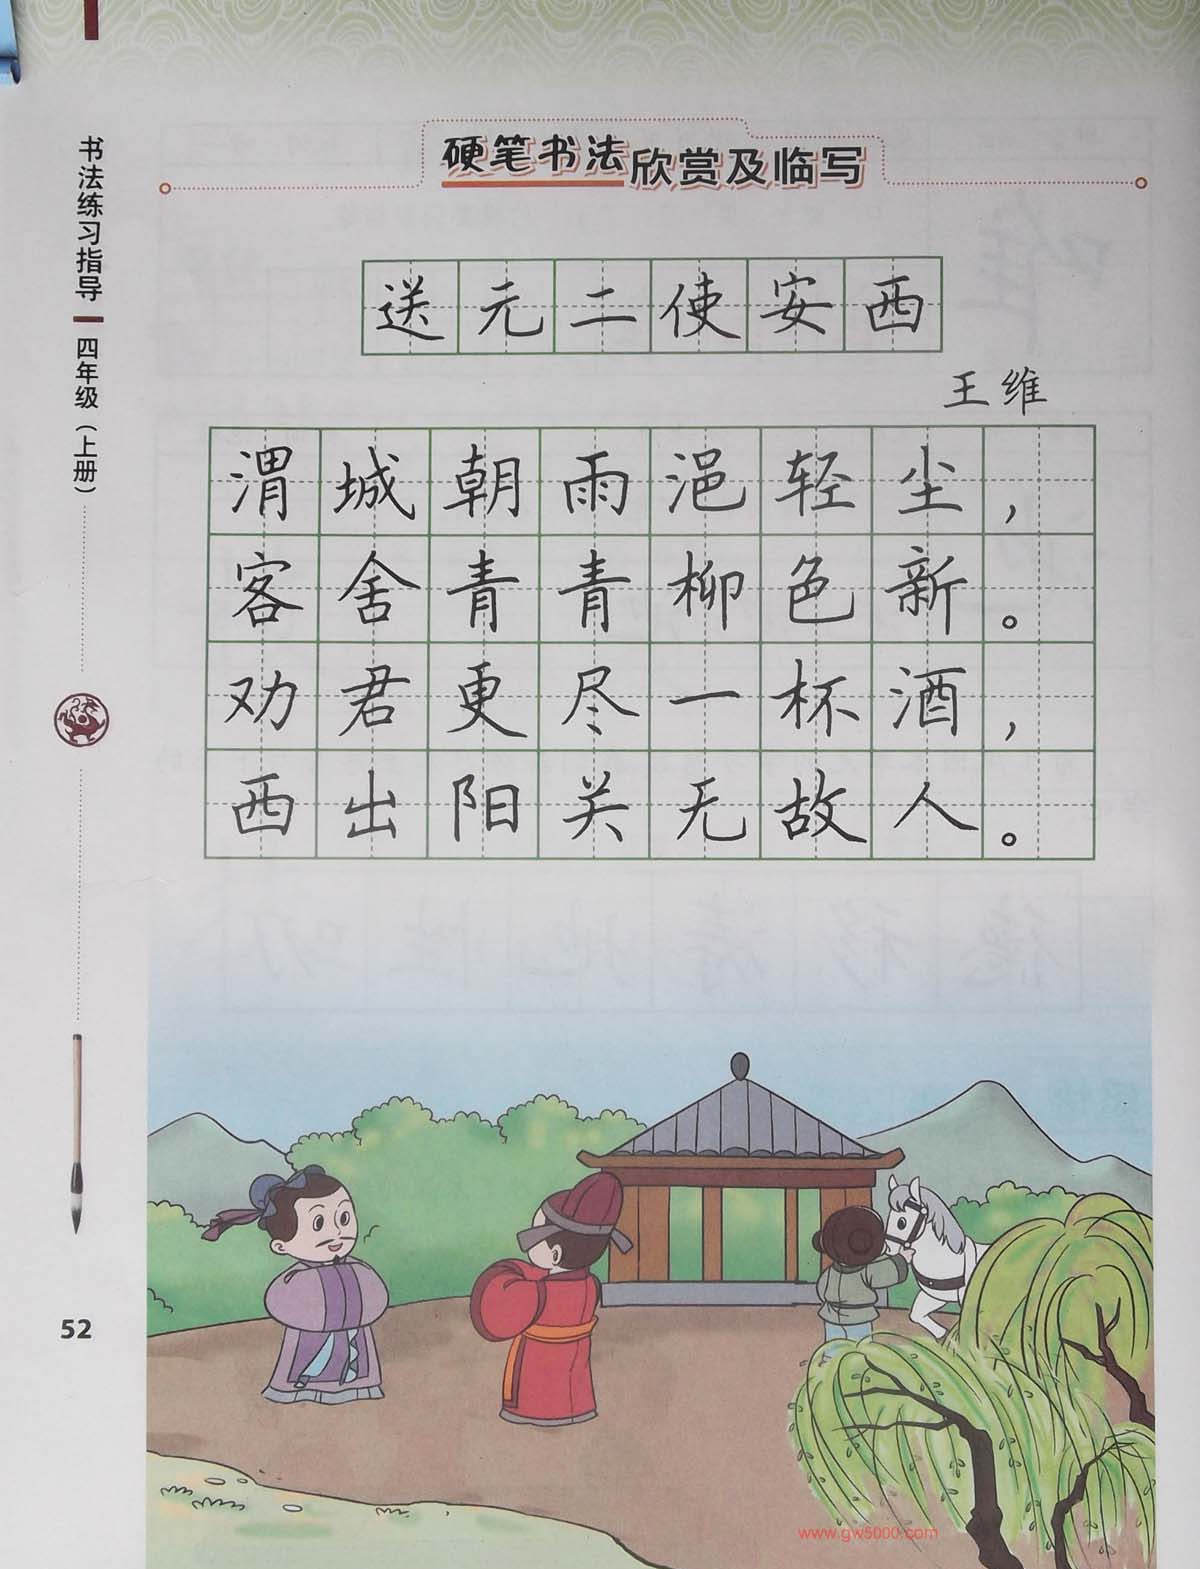 硬笔书法欣赏及临写
书法练习指导 四年级（上册）
送元二使安西
王维
渭城朝雨浥轻尘，
客舍青青柳色新。
劝君更尽一杯酒，
西出阳关无故人。
52
www.gw5000.com